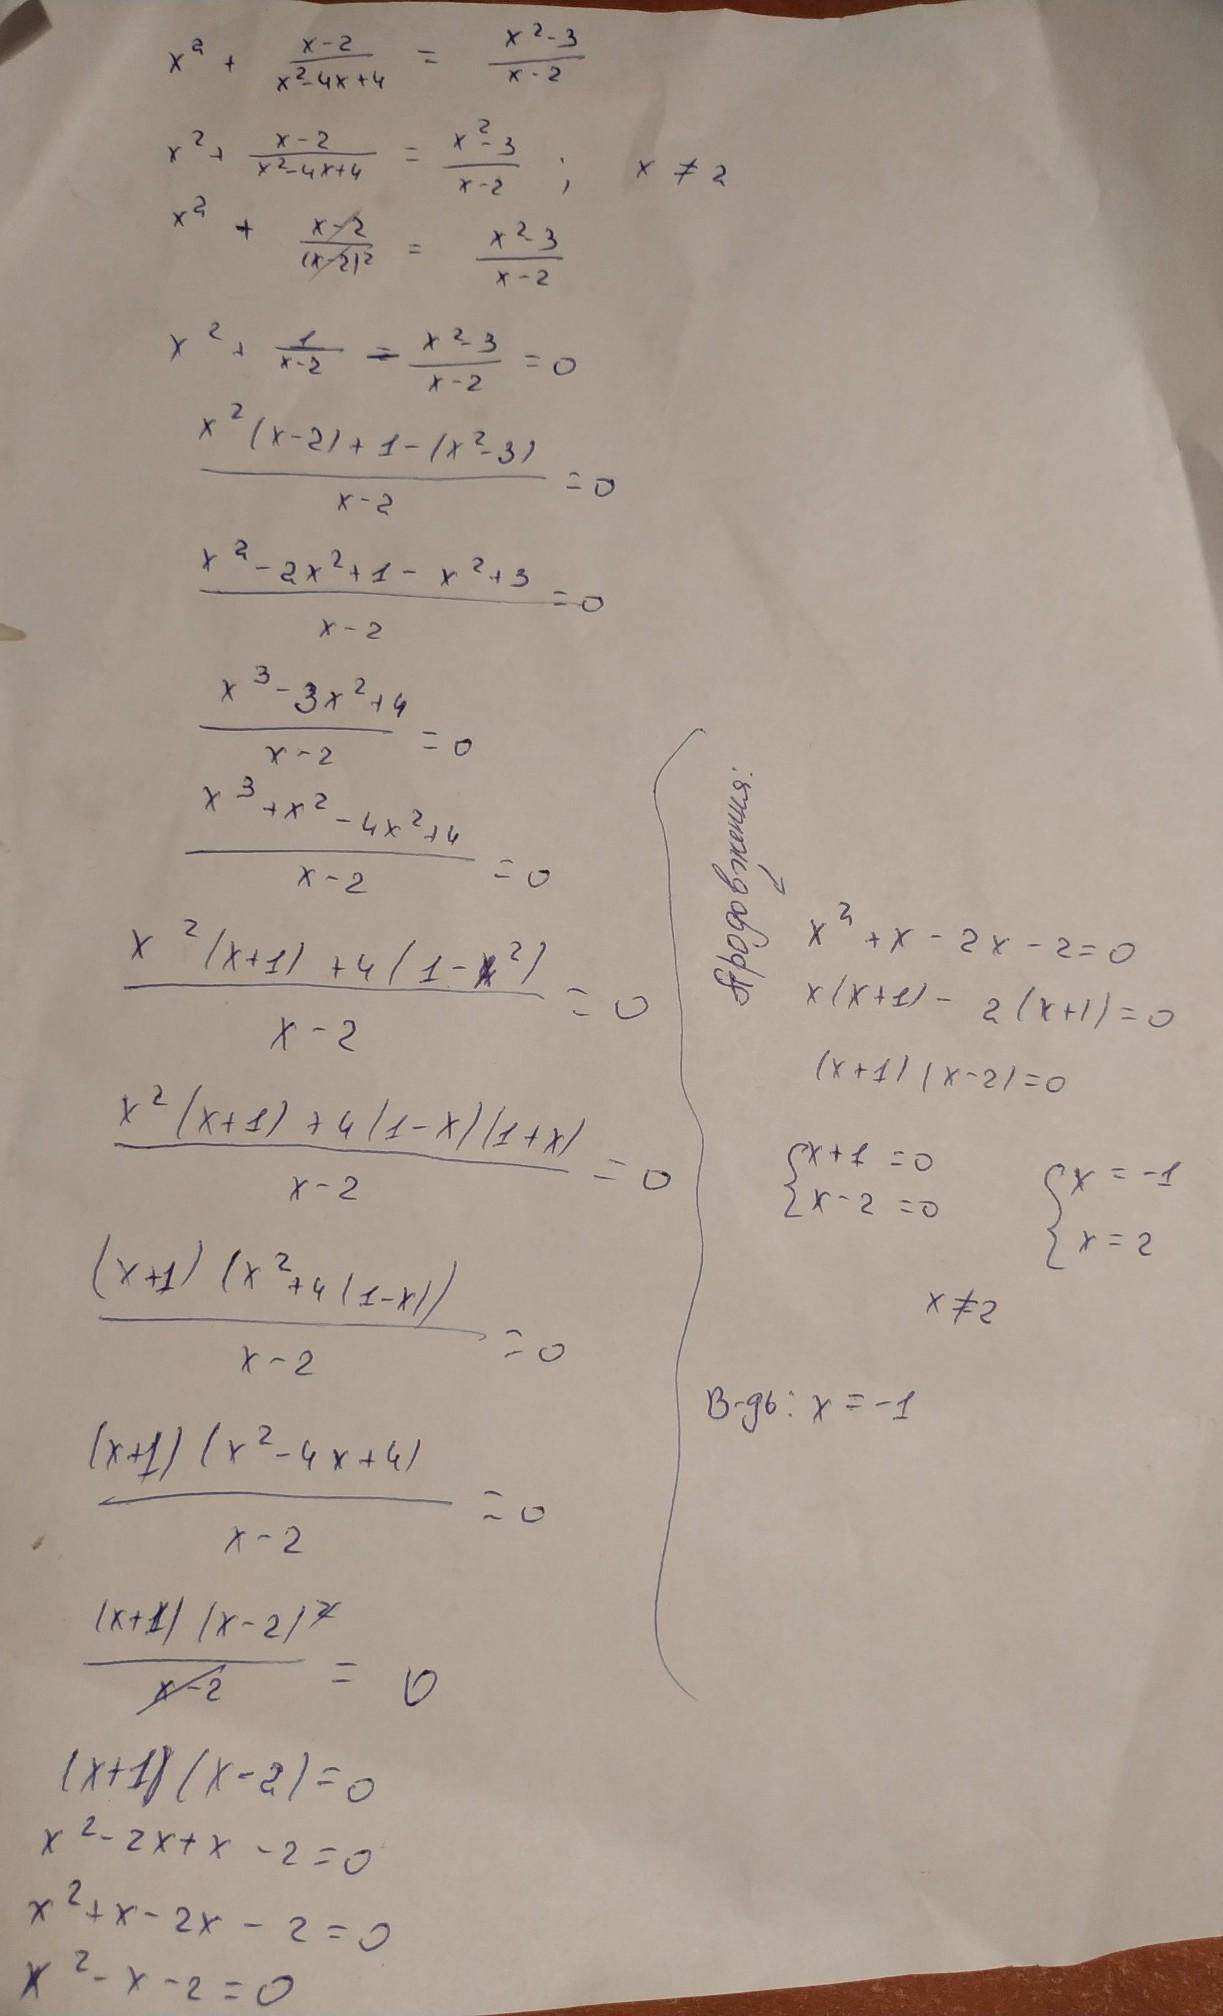 x² + (x-2)/(x²-4x+4) = (x²-3)/(x-2)
x² + (x-2)/(x²-4x+4) = (x²-3)/(x-2) ; x ≠ 2
x² + (x-2)/(x-2)² = (x²-3)/(x-2)
x² + 1/(x-2) - (x²-3)/(x-2) = 0
(x²(x-2)+1-(x²-3))/(x-2) = 0
(x²-2x²+1-x²+3)/(x-2) = 0
(x³-3x²+4)/(x-2) = 0
(x³+x²-4x²+4)/(x-2) = 0
(x²(x+1)+4(1-x²))/(x-2) = 0
(x²(x+1)+4(1-x)(1+x))/(x-2) = 0
((x+1)(x²+4(1-x)))/(x-2) = 0
((x+1)(x²-4x+4))/(x-2) = 0
((x+1)(x-2)²)/(x-2) = 0
(x+1)(x-2)=0
x²-2x+x-2=0
x²+x-2x-2=0
x²-x-2=0
Продовження:
x²+x-2x-2=0
x(x+1)-2(x+1)=0
(x+1)(x-2)=0
{x+1=0 {x=-1
{x-2=0 {x=2
x≠2
В-дь: x=-1